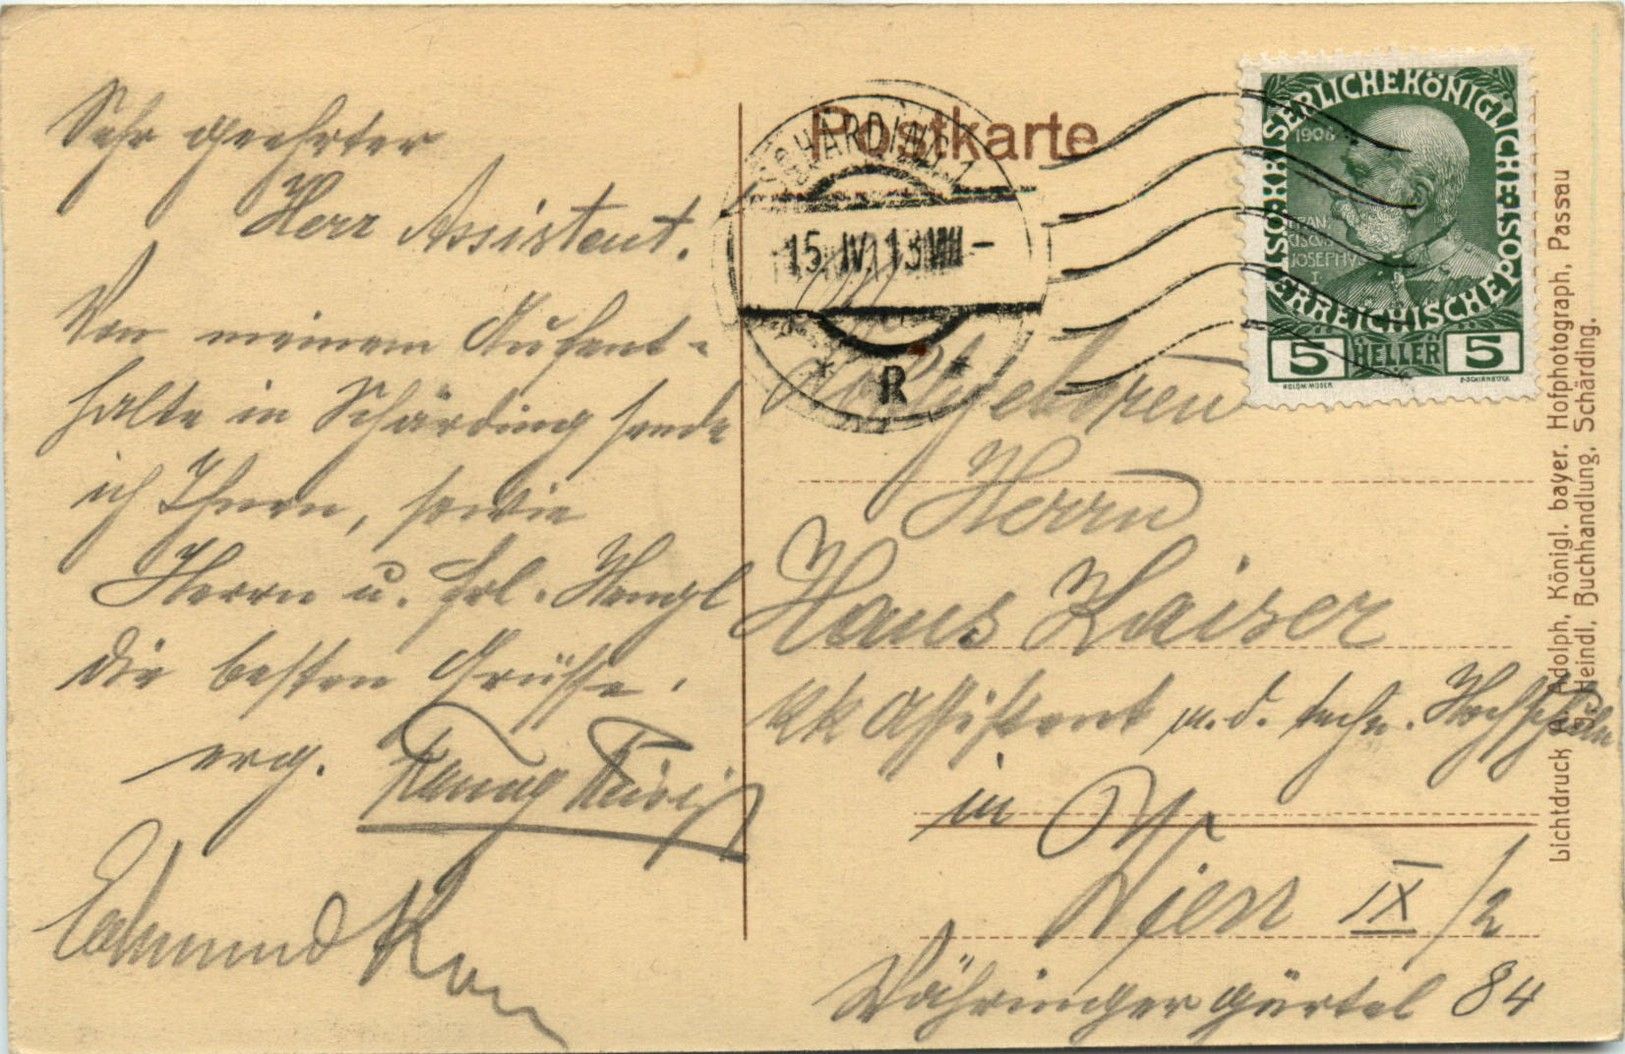 Sehr geehrter
Herr Assistent.
Von meinem Aufent-
halte in Schärding sende
ich Ihnen, sowie
Herrn u. Frl. Wengl
die besten Grüsse.
erg.
Edmund
Postkarte
SCHÄRDING 1
15. IV. 13 VIII -
R
KAISERLICHE KÖNIGLICHE ÖSTERREICHISCHE POST
1908
FRAN
CISCVS
JOSEPHV
I.
5 HELLER 5
Wohlgeboren
Herrn
Hans Kaiser
kk Assistent a. d. techn. Hochschule
in
Wien IX/2
Währingergürtel 84
Lichtdruck A. Adolph, Königl. bayer. Hofphotograph, Passau
Heindl, Buchhandlung, Schärding.